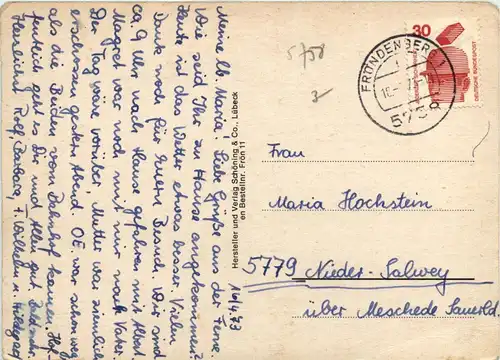 Meine lb. Maria! Liebe Grüße aus der Ferne.
Wie seid Ihr zu Hause angekommen?
Heute ist das Wetter etwas besser. Vielen
Dank noch für Euren Besuch. Wir sind
ca. 9 Uhr nach Hause gefahren mit Albert.
Magret war noch mit nur nach Vater.
Der Tag wäre vorüber, Mutter war ziemlich
erschossen gestern Abend. OE war schon weg
als die Beiden vom Bahnhof kamen. Hof-
fentlich geht es Dir und Allen gut.
Herzlichst Rolf, Barbara, Wilhelm u. Hildegard
16/4.73
Hersteller und Verlag Schöning & Co., Lübeck
en Bestellnr. Frön 11
5758
3
FRÖNDENBERG
5758
30
DEUTSCHE BUNDESPOST
Frau
Maria Hochstein
5779 Nieder-Salwey
über Meschede Sauerld.